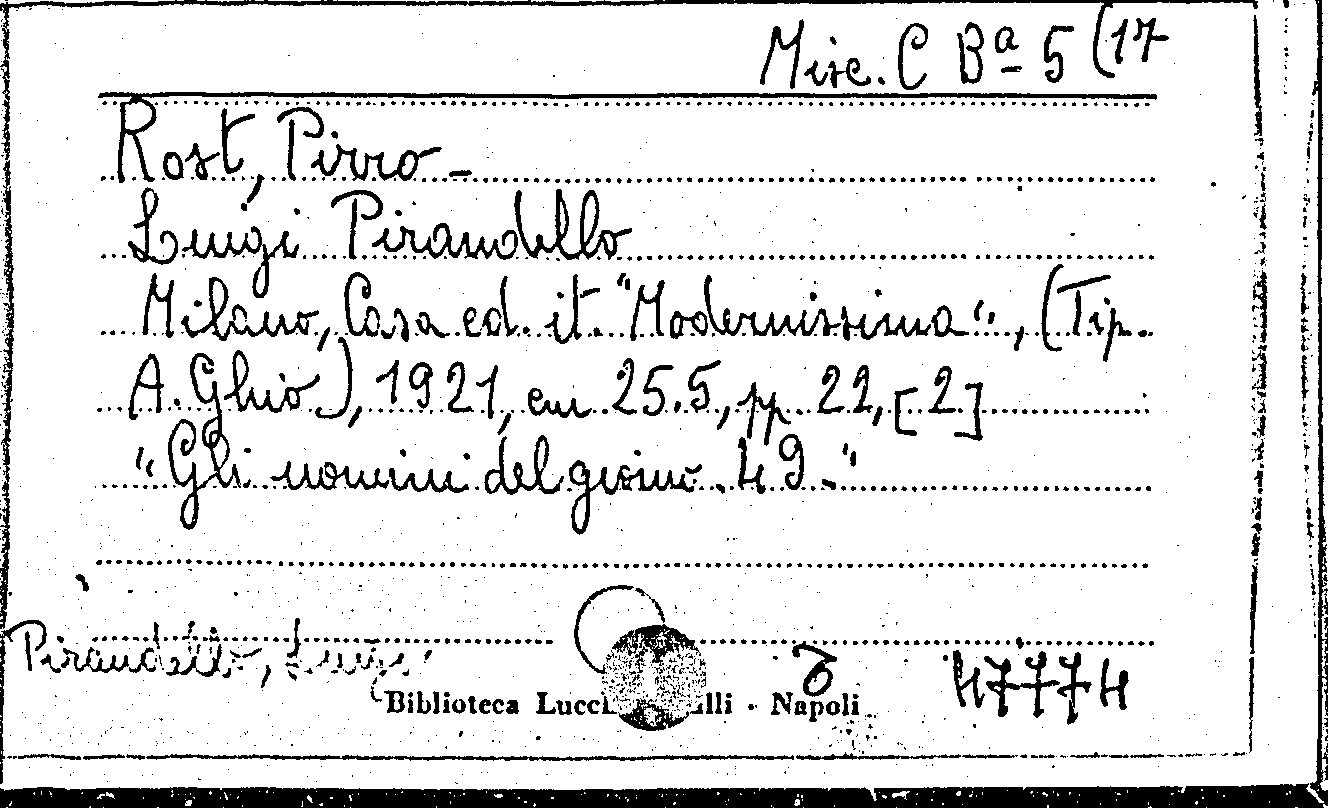 Misc. C Bª 5 (17
Rost, Pirro -
Luigi Pirandello
Milano, Casa ed. it. "Modernissima", (Tip.
A. Ghio), 1921, cm 25.5, pp 22, [2]
"Gli uomini del giorno. 49."
Pirandello, Luigi
Biblioteca Lucch lli · Napoli
47774